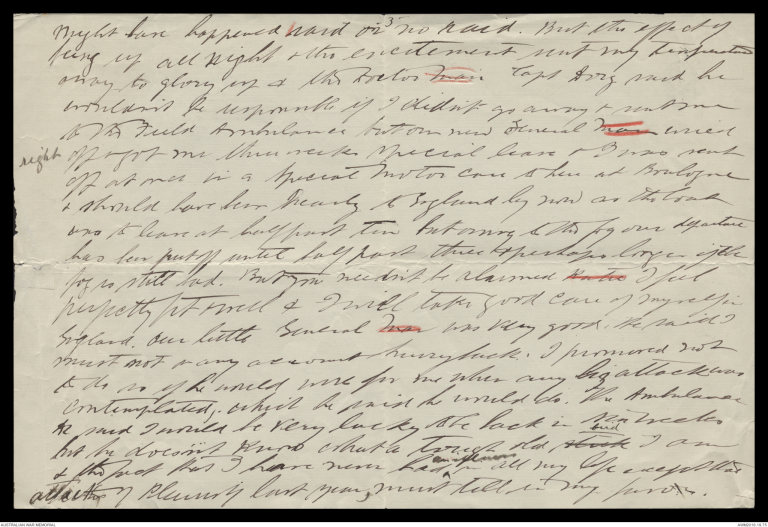 3
might have happened raid or no raid. But the effect of
being up all night & the excitement sent my temperature
away to glory up & the Doctor man Capt said he
wouldn't be responsible if I didn't go away & sent me
to the Field Ambulance but our new General Man cried
right
off & got me three weeks special leave & I was sent
off at once in a special motor car to here at Boulogne
& should have been nearly to England by now as the boat
was to leave at half past ten but owing to the fog our departure
has been put off until half past three & perhaps longer if the
fog is still bad. But you needn't be alarmed I feel
perfectly fit & well & I will take good care of myself in
England. Our little General Man was very good. He said I
must not on any account hurry back. I promised not
to do so if he would wire for me when any big attack was
contemplated, which he said he would do. The Ambulance
he said I would be very lucky to be back in six weeks
but he doesn't know what a tough old bird stick I am
& the fact that I have never had an illness in all my life except that
attack of Pleurisy last year, must tell in my favor.
AUSTRALIAN WAR MEMORIAL
AWM2016.16.75